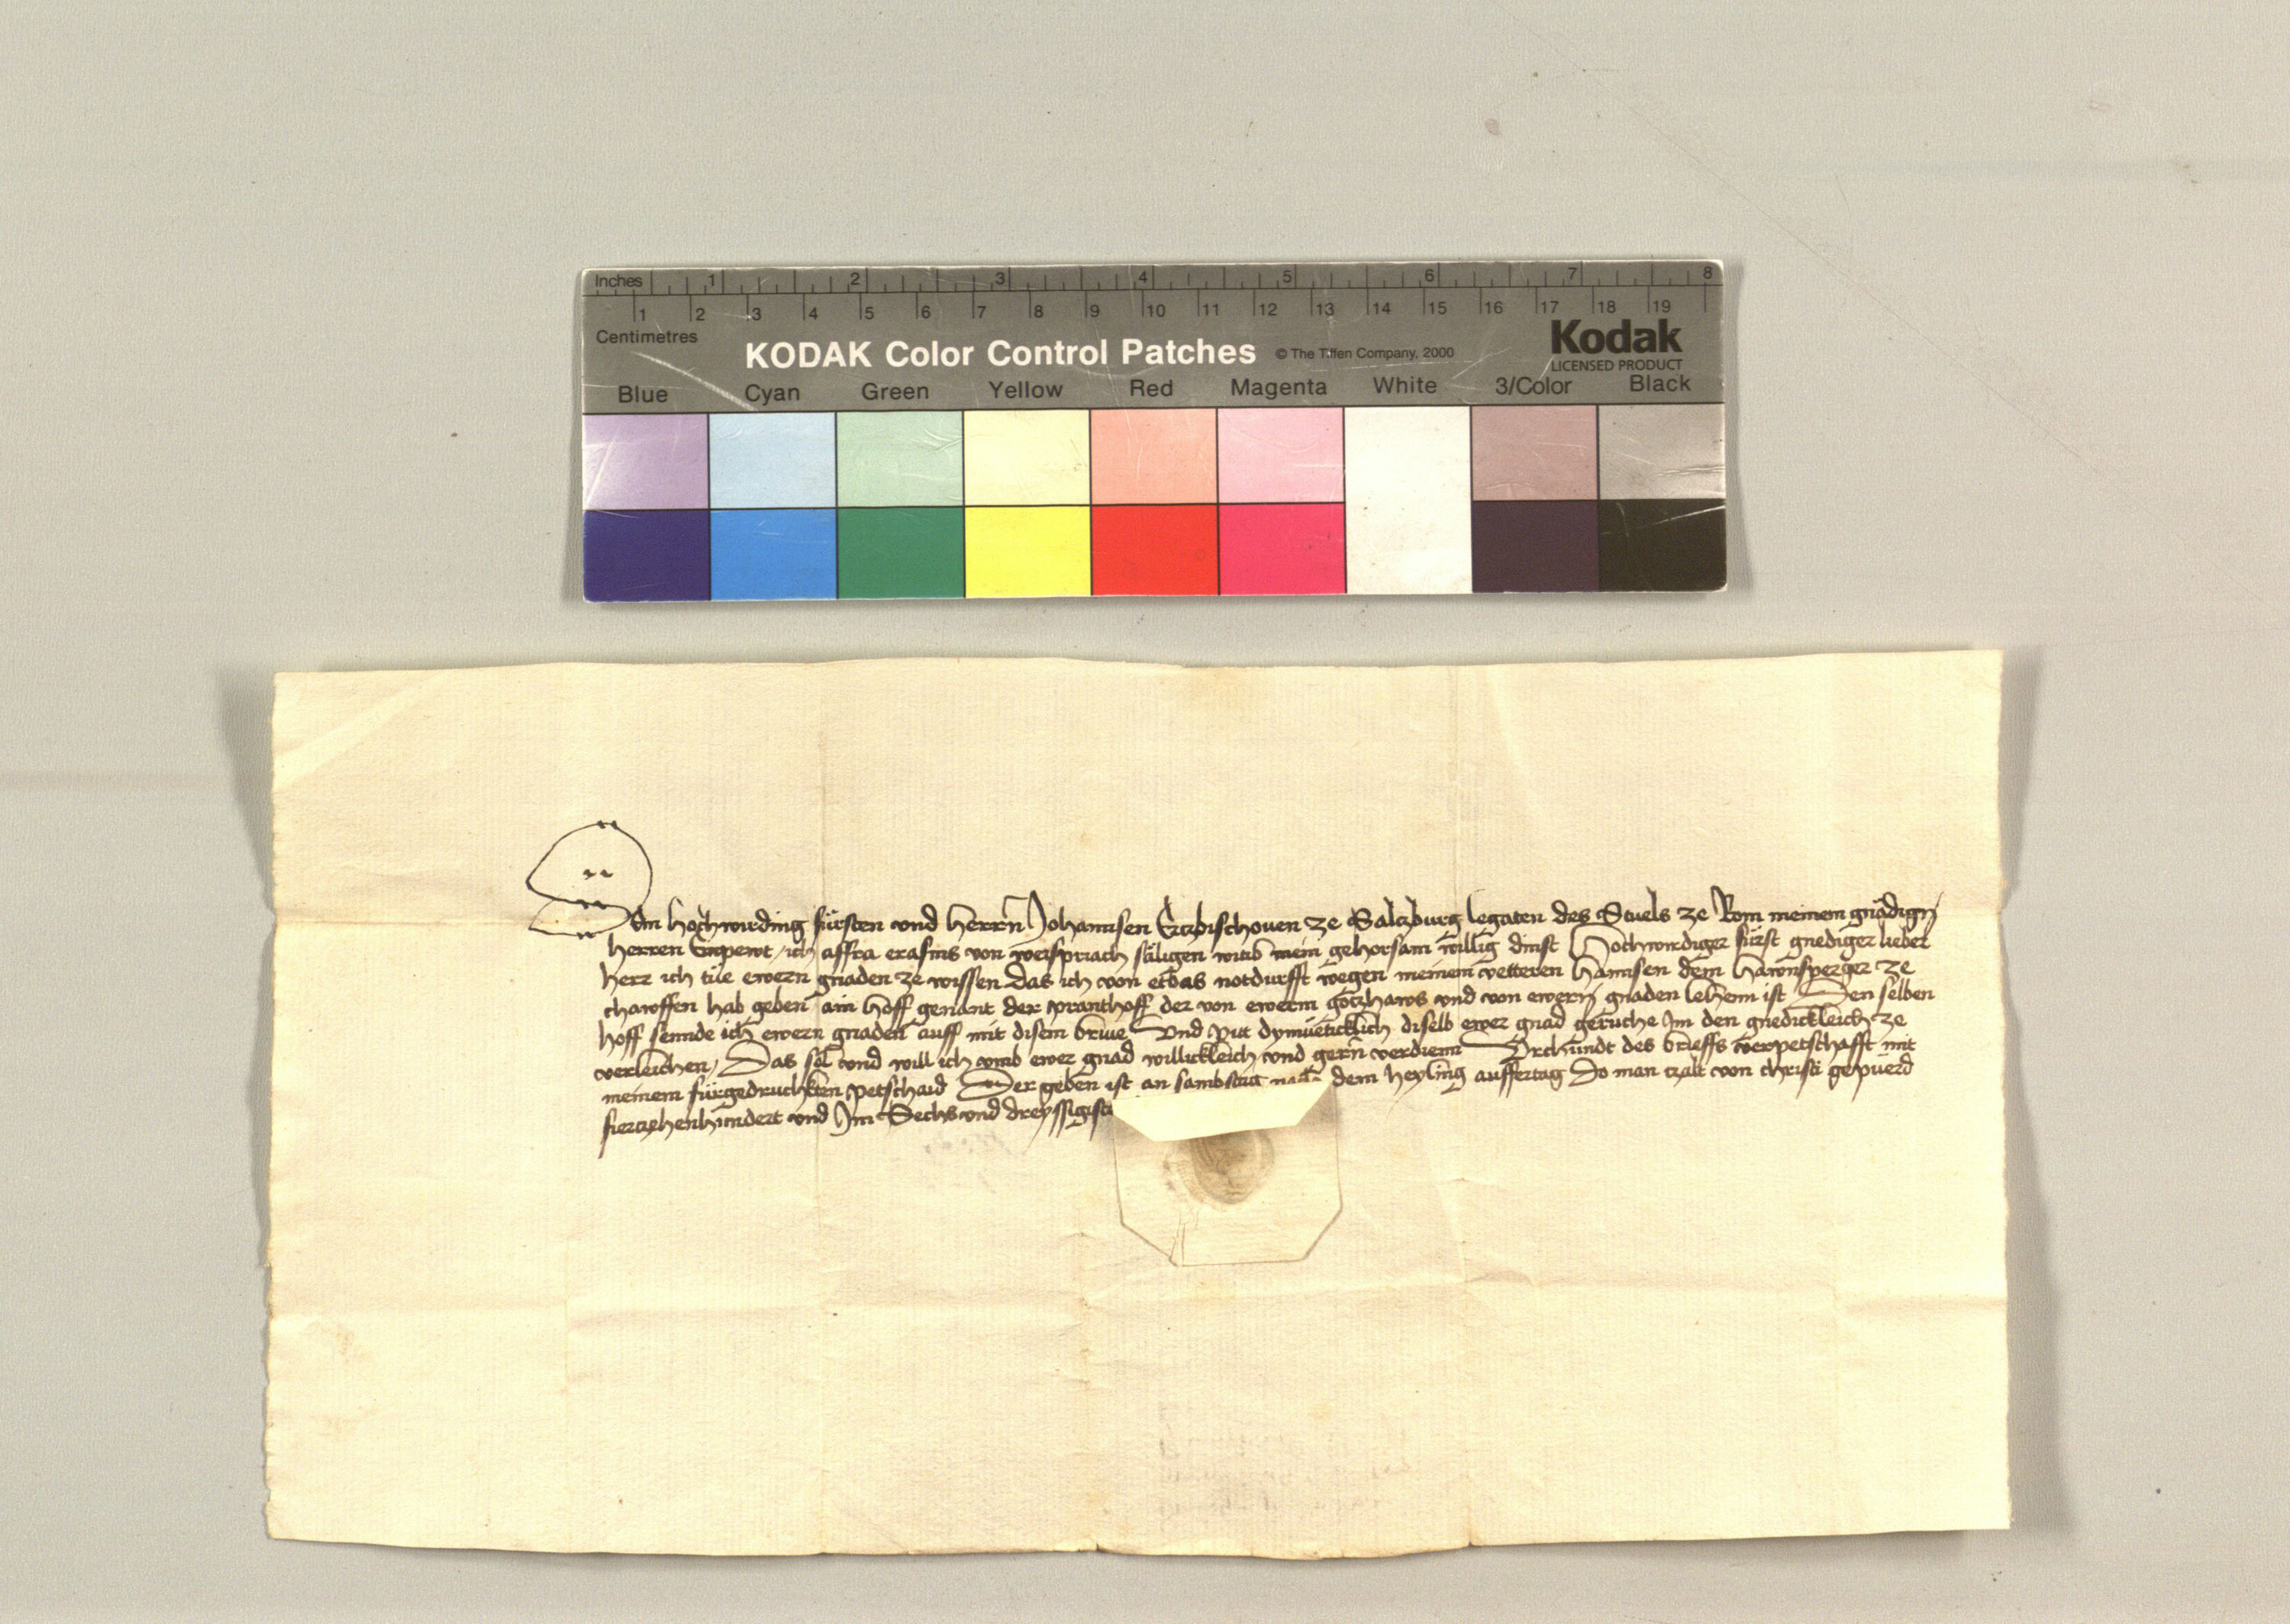 Inches 1 2 3 4 5 6 7 8
1 2 3 4 5 6 7 8 9 10 11 12 13 14 15 16 17 18 19
Centimetres
KODAK Color Control Patches © The Tiffen Company, 2000 Kodak
LICENSED PRODUCT
Blue Cyan Green Yellow Red Magenta White 3/Color Black
Dem hochwirding fürsten vnd herrn Johannsen Ertzbischouen ze Salczburg legaten des Stuels ze Rom meinem gnädign
herren Enpewt ich affra erasms von weispriach säligen witib mein gehorsam willig dinst Hochwirdiger fürst gnediger lieber
herr ich tüe ewern gnaden ze wissen Das ich von etbas notdurfft wegen meinem vetteren hannsen dem hawnsperger ze
hab geben ain hoff genant der pranthoff der von ewerm gotzhaws vnd von ewern gnaden lehenn ist Den selben
hoff sennde ich ewern gnaden auff mit disem brive Vnd pit dymüeticklich diselb ewer gnad geruche Im den gnedickleich ze
verleichen / Das sol vnd will ich vmb ewer gnad willickleich vnd gern verdienn Vrchundt des brieffs verpetschafft mit
meinem fürgedruchkten petschaid Der geben ist an sambstag nach dem heyling auffertag Do man czalt von christi gepuerd
fierczehenhundert vnd Im Sechs vnd dreyssigist